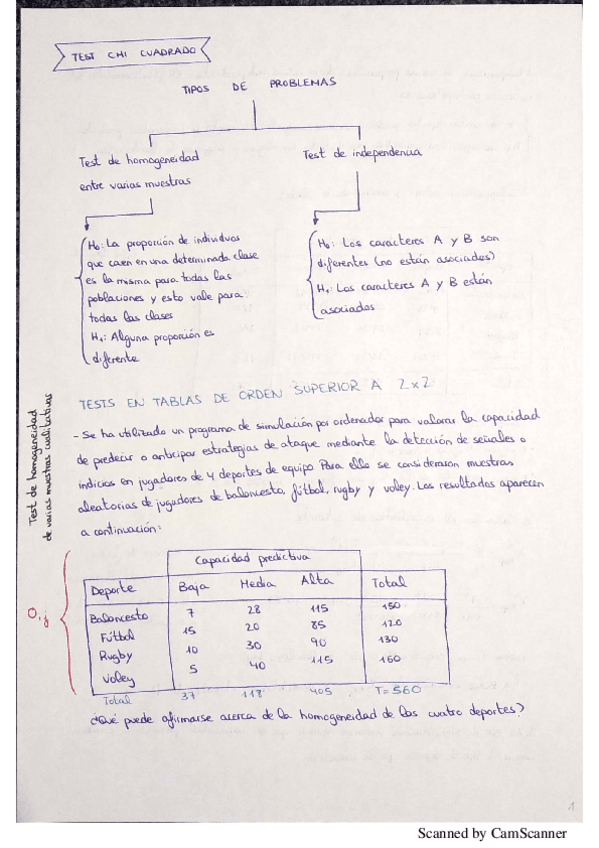 TEST CHI CUADRADO
TIPOS DE PROBLEMAS
Test de homogeneidad
entre varias muestras
Test de independencia
H₀: La proporción de individuos
que caen en una determinada clase
es la misma para todas las
poblaciones y esto vale para
todas las clases
H₁: Alguna proporción es
diferente
H₀: Los caracteres A y B son
diferentes (no están asociados)
H₁: Los caracteres A y B están
asociados
TESTS EN TABLAS DE ORDEN SUPERIOR A 2x2
Test de homogeneidad
de varias muestras cualitativas
- Se ha utilizado un programa de simulación por ordenador para valorar la capacidad
de predecir o anticipar estrategias de ataque mediante la detección de señales o
indicios en jugadores de 4 deportes de equipo. Para ello se consideraron muestras
aleatorias de jugadores de baloncesto, fútbol, rugby y voley. Los resultados aparecen
a continuación:
Capacidad predictiva
Deporte Baja Media Alta Total
Baloncesto 7 28 115 150
Fútbol 15 20 85 120
Rugby 10 30 90 130
Voley 5 40 115 160
Total 37 118 405 T=560
Oij
¿Qué puede afirmarse acerca de la homogeneidad de los cuatro deportes?
1
Scanned by CamScanner